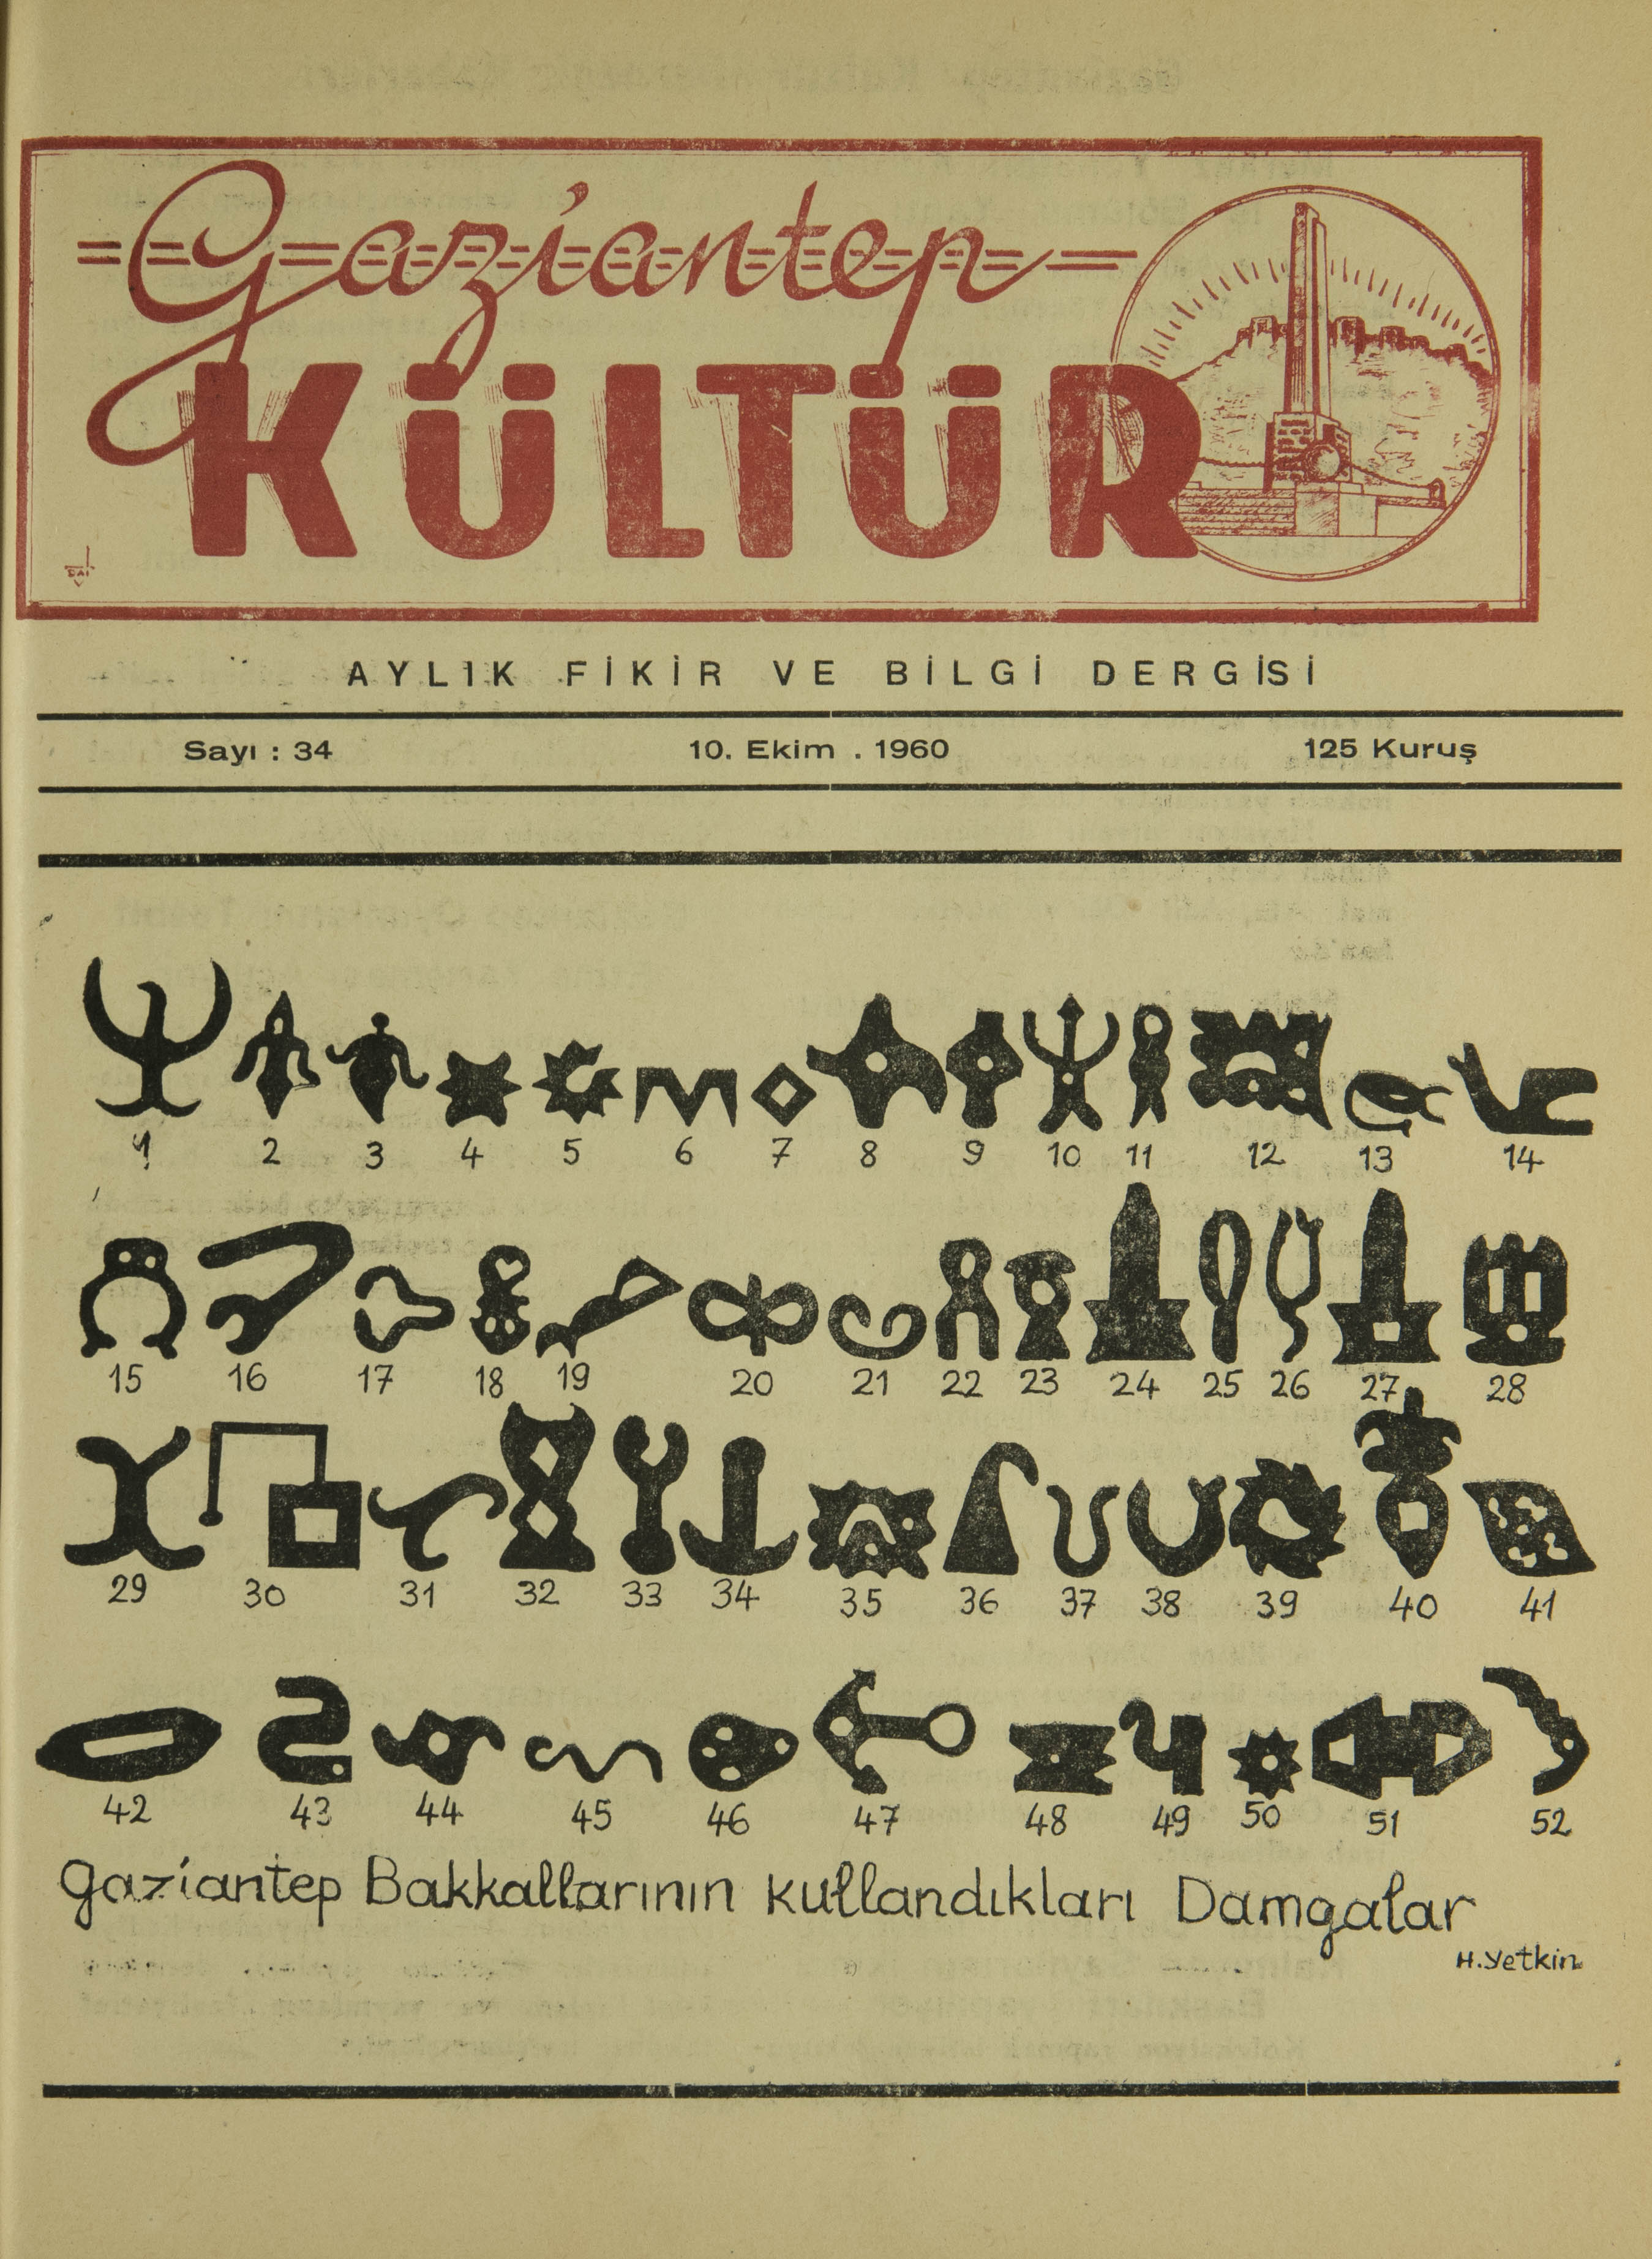 Gaziantep
KÜLTÜR
DAİ
AYLIK FİKİR VE BİLGİ DERGİSİ
Sayı : 34 10. Ekim . 1960 125 Kuruş
1 2 3 4 5 6 7 8 9 10 11 12 13 14
15 16 17 18 19 20 21 22 23 24 25 26 27 28
29 30 31 32 33 34 35 36 37 38 39 40 41
42 43 44 45 46 47 48 49 50 51 52
Gaziantep Bakkallarının kullandıkları Damgalar
H.Yetkin